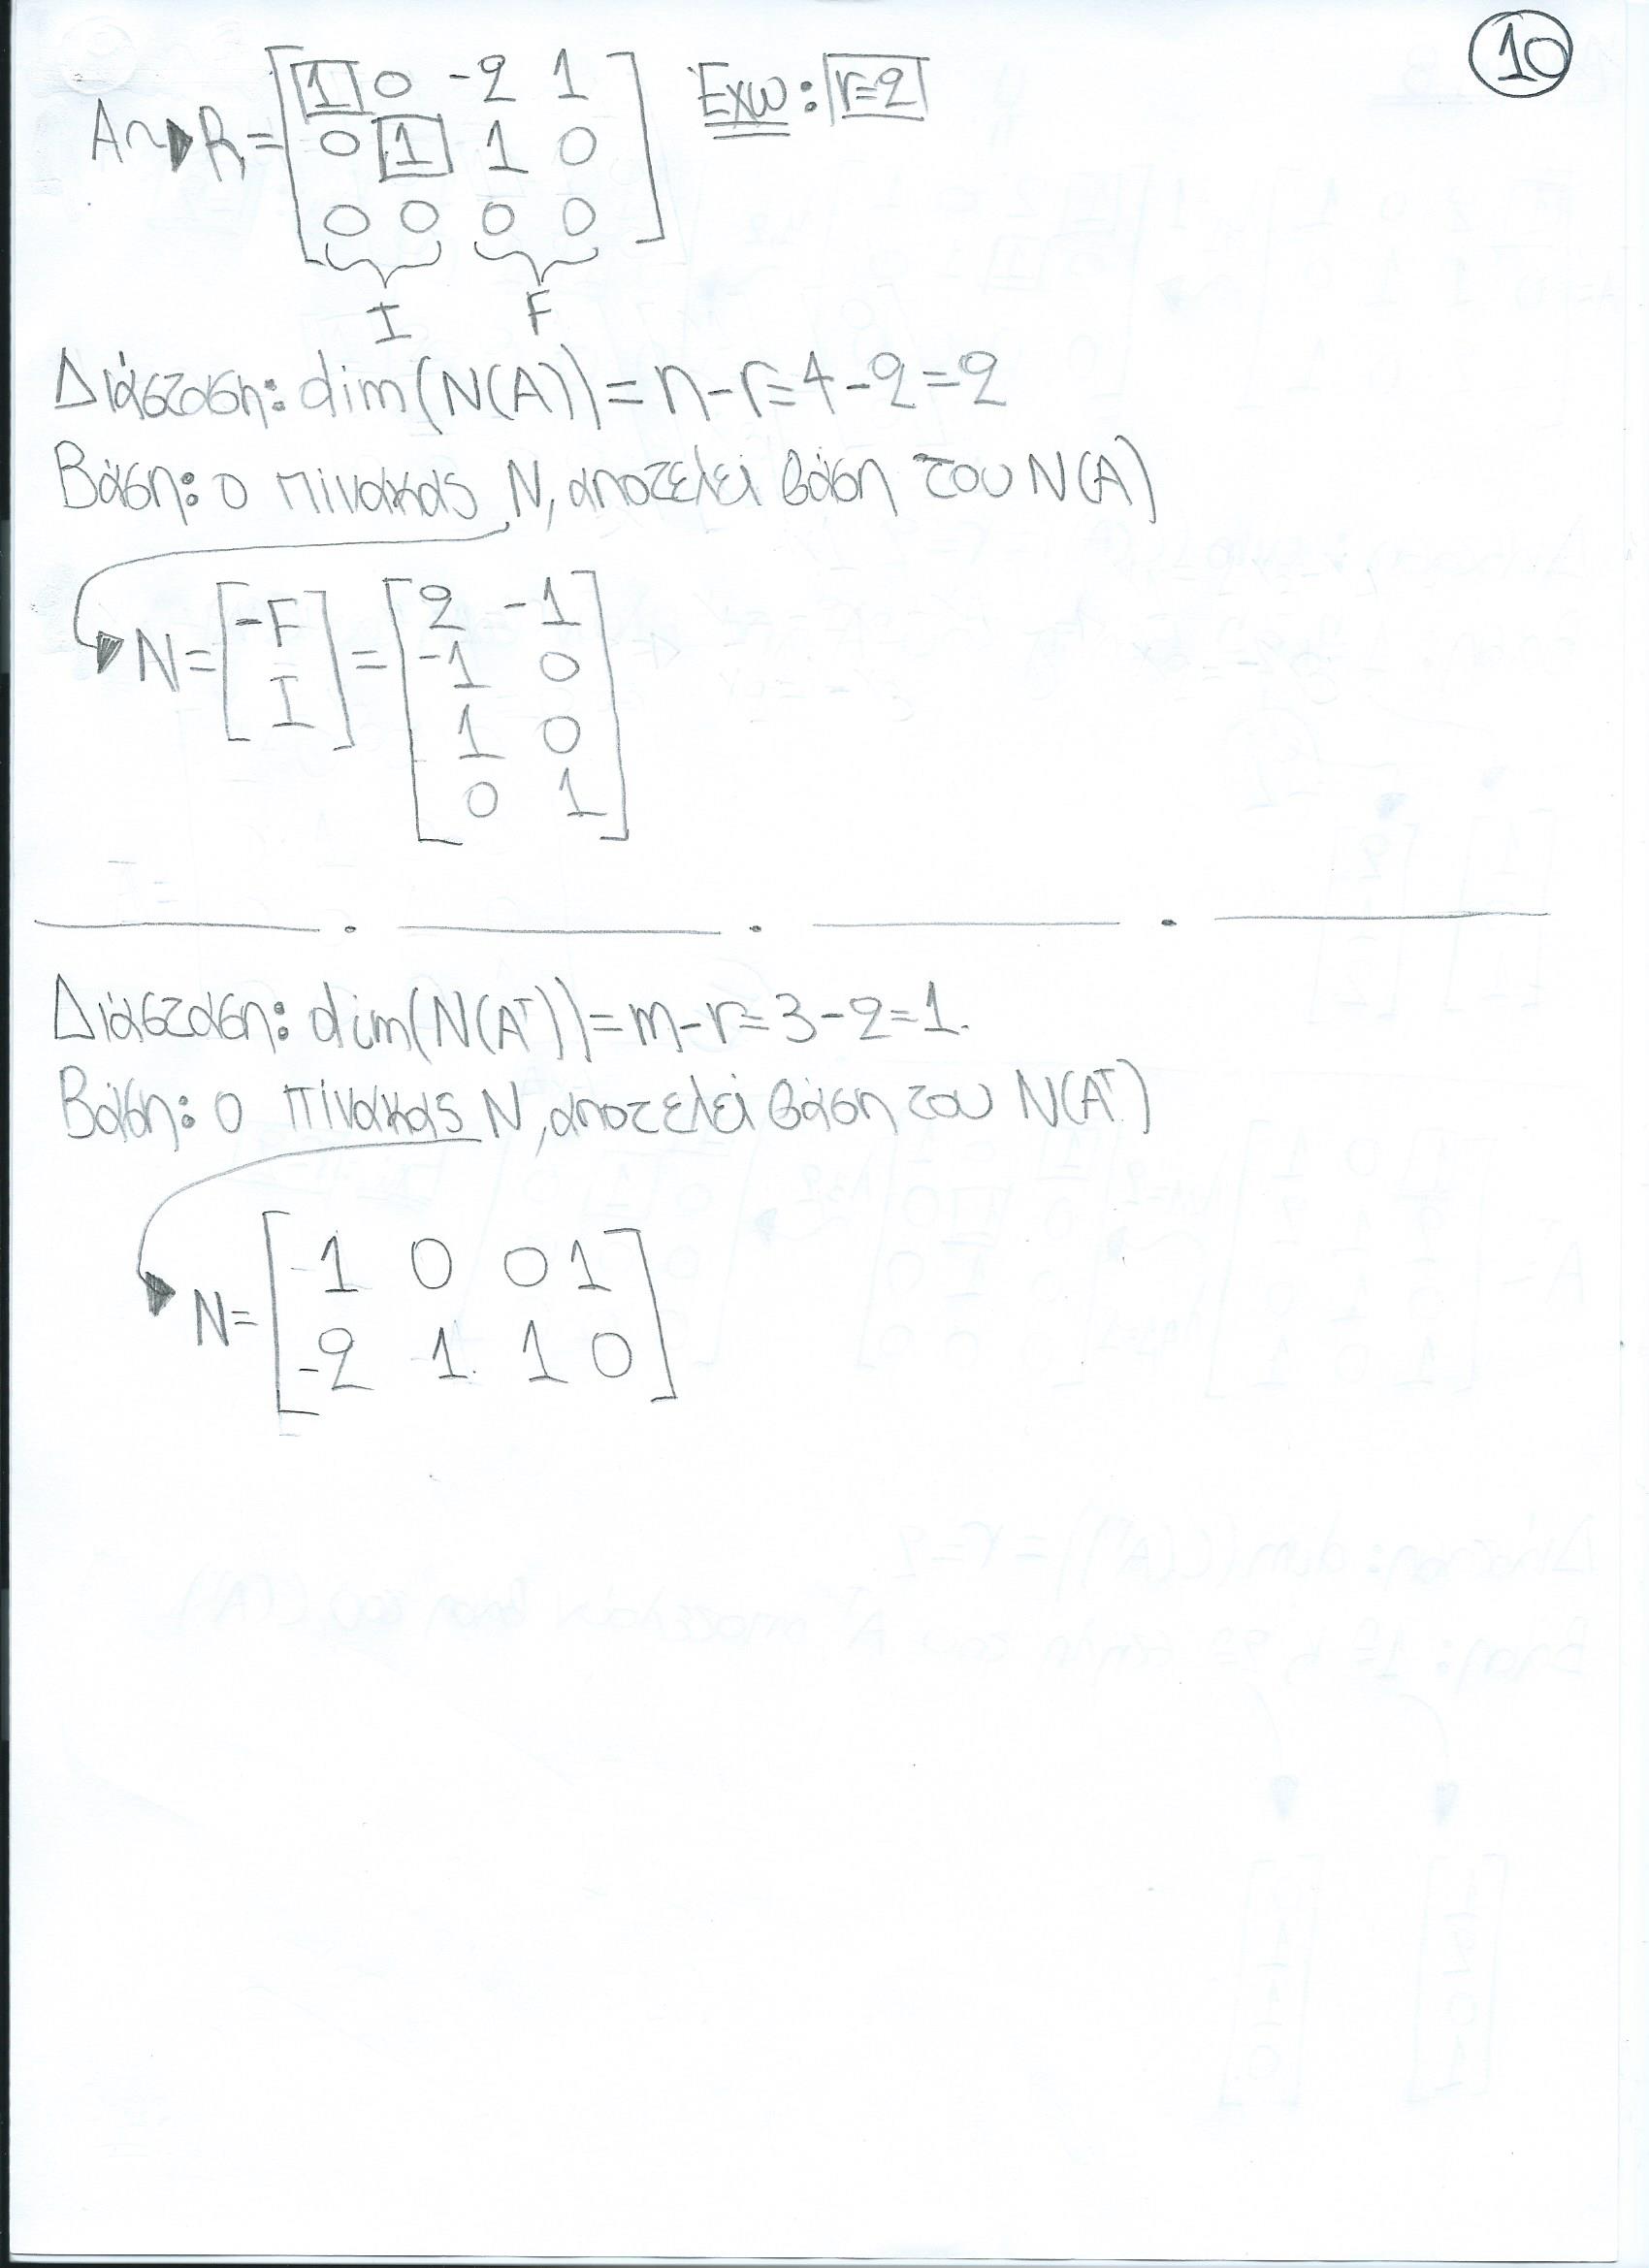 10
A~▶R=[1 0 -2 1
0 1 1 0
0 0 0 0] Εχω: r=2
I F
Διάσταση: dim(N(A))=n-r=4-2=2
Βάση: ο πίνακας N, αποτελεί βάση του N(A)
N=[-F
I]=[2 -1
-1 0
1 0
0 1]
Διάσταση: dim(N(Aᵀ))=m-r=3-2=1.
Βάση: ο πίνακας N, αποτελεί βάση του N(Aᵀ)
N=[-1 0 0 1
-2 1 1 0]